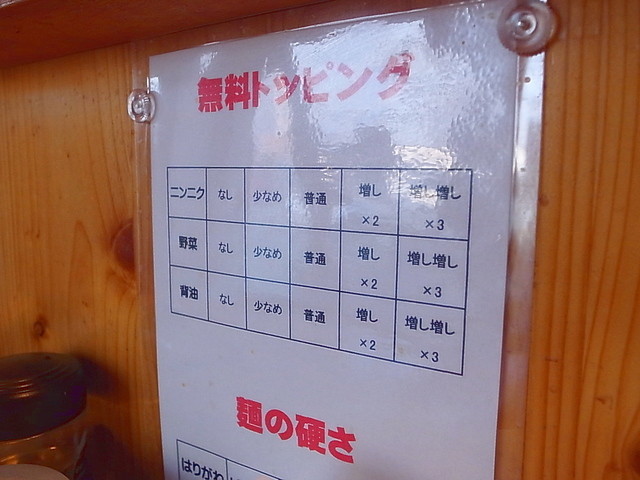 無料トッピング
ニンニク なし 少なめ 普通 増し ×2 増し増し ×3
野菜 なし 少なめ 普通 増し ×2 増し増し ×3
背油 なし 少なめ 普通 増し ×2 増し増し ×3
麺の硬さ
はりがね